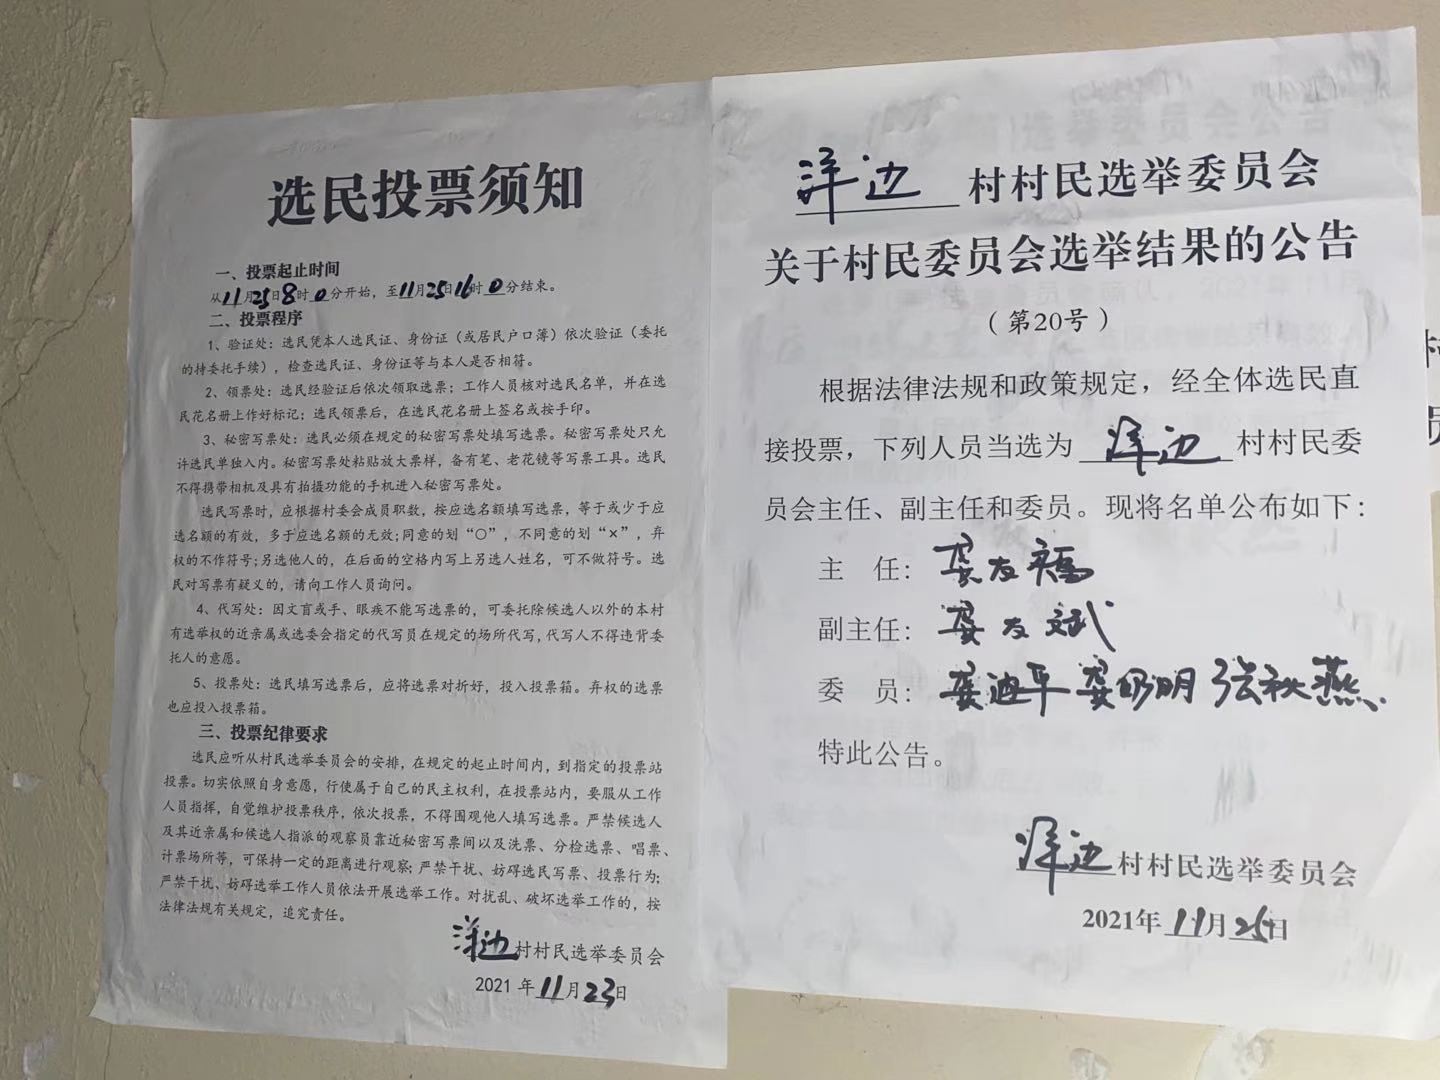 选民投票须知
一、投票起止时间
从11月25日8时0分开始，至11月25日16时0分结束。
二、投票程序
1、验证处：选民凭本人选民证、身份证（或居民户口簿）依次验证（委托
的持委托手续），检查选民证、身份证等与本人是否相符。
2、领票处：选民经验证后依次领取选票；工作人员核对选民名单，并在选
民花名册上作好标记；选民领票后，在选民花名册上签名或按手印。
3、秘密写票处：选民必须在规定的秘密写票处填写选票。秘密写票处只允
许选民单独入内。秘密写票处粘贴放大票样，备有笔、老花镜等写票工具。选民
不得携带相机及具有拍摄功能的手机进入秘密写票处。
选民写票时，应根据村委会成员职数，按应选名额填写选票，等于或少于应
选名额的有效，多于应选名额的无效；同意的划“○”，不同意的划“×”，弃
权的不作符号；另选他人的，在后面的空格内写上另选人姓名，可不做符号。选
民对写票有疑义的，请向工作人员询问。
4、代写处：因文盲或手、眼疾不能写选票的，可委托除候选人以外的本村
有选举权的近亲属或选委会指定的代写员在规定的场所代写，代写人不得违背委
托人的意愿。
5、投票处：选民填写选票后，应将选票对折好，投入投票箱。弃权的选票
也应投入投票箱。
三、投票纪律要求
选民应听从村民选举委员会的安排，在规定的起止时间内，到指定的投票站
投票。切实依照自身意愿，行使属于自己的民主权利，在投票站内，要服从工作
人员指挥，自觉维护投票秩序，依次投票，不得围观他人填写选票。严禁候选人
及其近亲属和候选人指派的观察员靠近秘密写票间以及洗票、分检选票、唱票、
计票场所等，可保持一定的距离进行观察；严禁干扰、妨碍选民写票、投票行为；
严禁干扰、妨碍选举工作人员依法开展选举工作。对扰乱、破坏选举工作的，按
法律法规有关规定，追究责任。
洋边村村民选举委员会
2021年11月23日
洋边村村民选举委员会
关于村民委员会选举结果的公告
（第20号）
根据法律法规和政策规定，经全体选民直
接投票，下列人员当选为洋边村村民委
员会主任、副主任和委员。现将名单公布如下：
主 任：龚友福
副主任：龚友斌
委 员：龚迪平 龚明 张秋燕
特此公告。
洋边村村民选举委员会
2021年11月25日